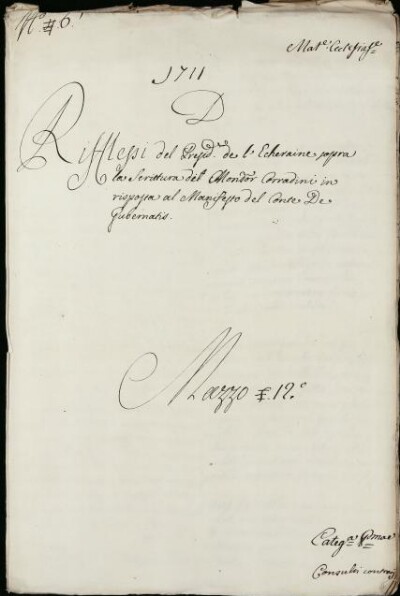 N.° 6.
Mat.e Eccles.e
1711
D
Riflessi del Presid.te de l'Echeraine sopra
la Scrittura del Monsr Corradini in
risposta al Manifesto del Conte De
Gubernatis.
Mazzo 12.°
Categ.a Pma